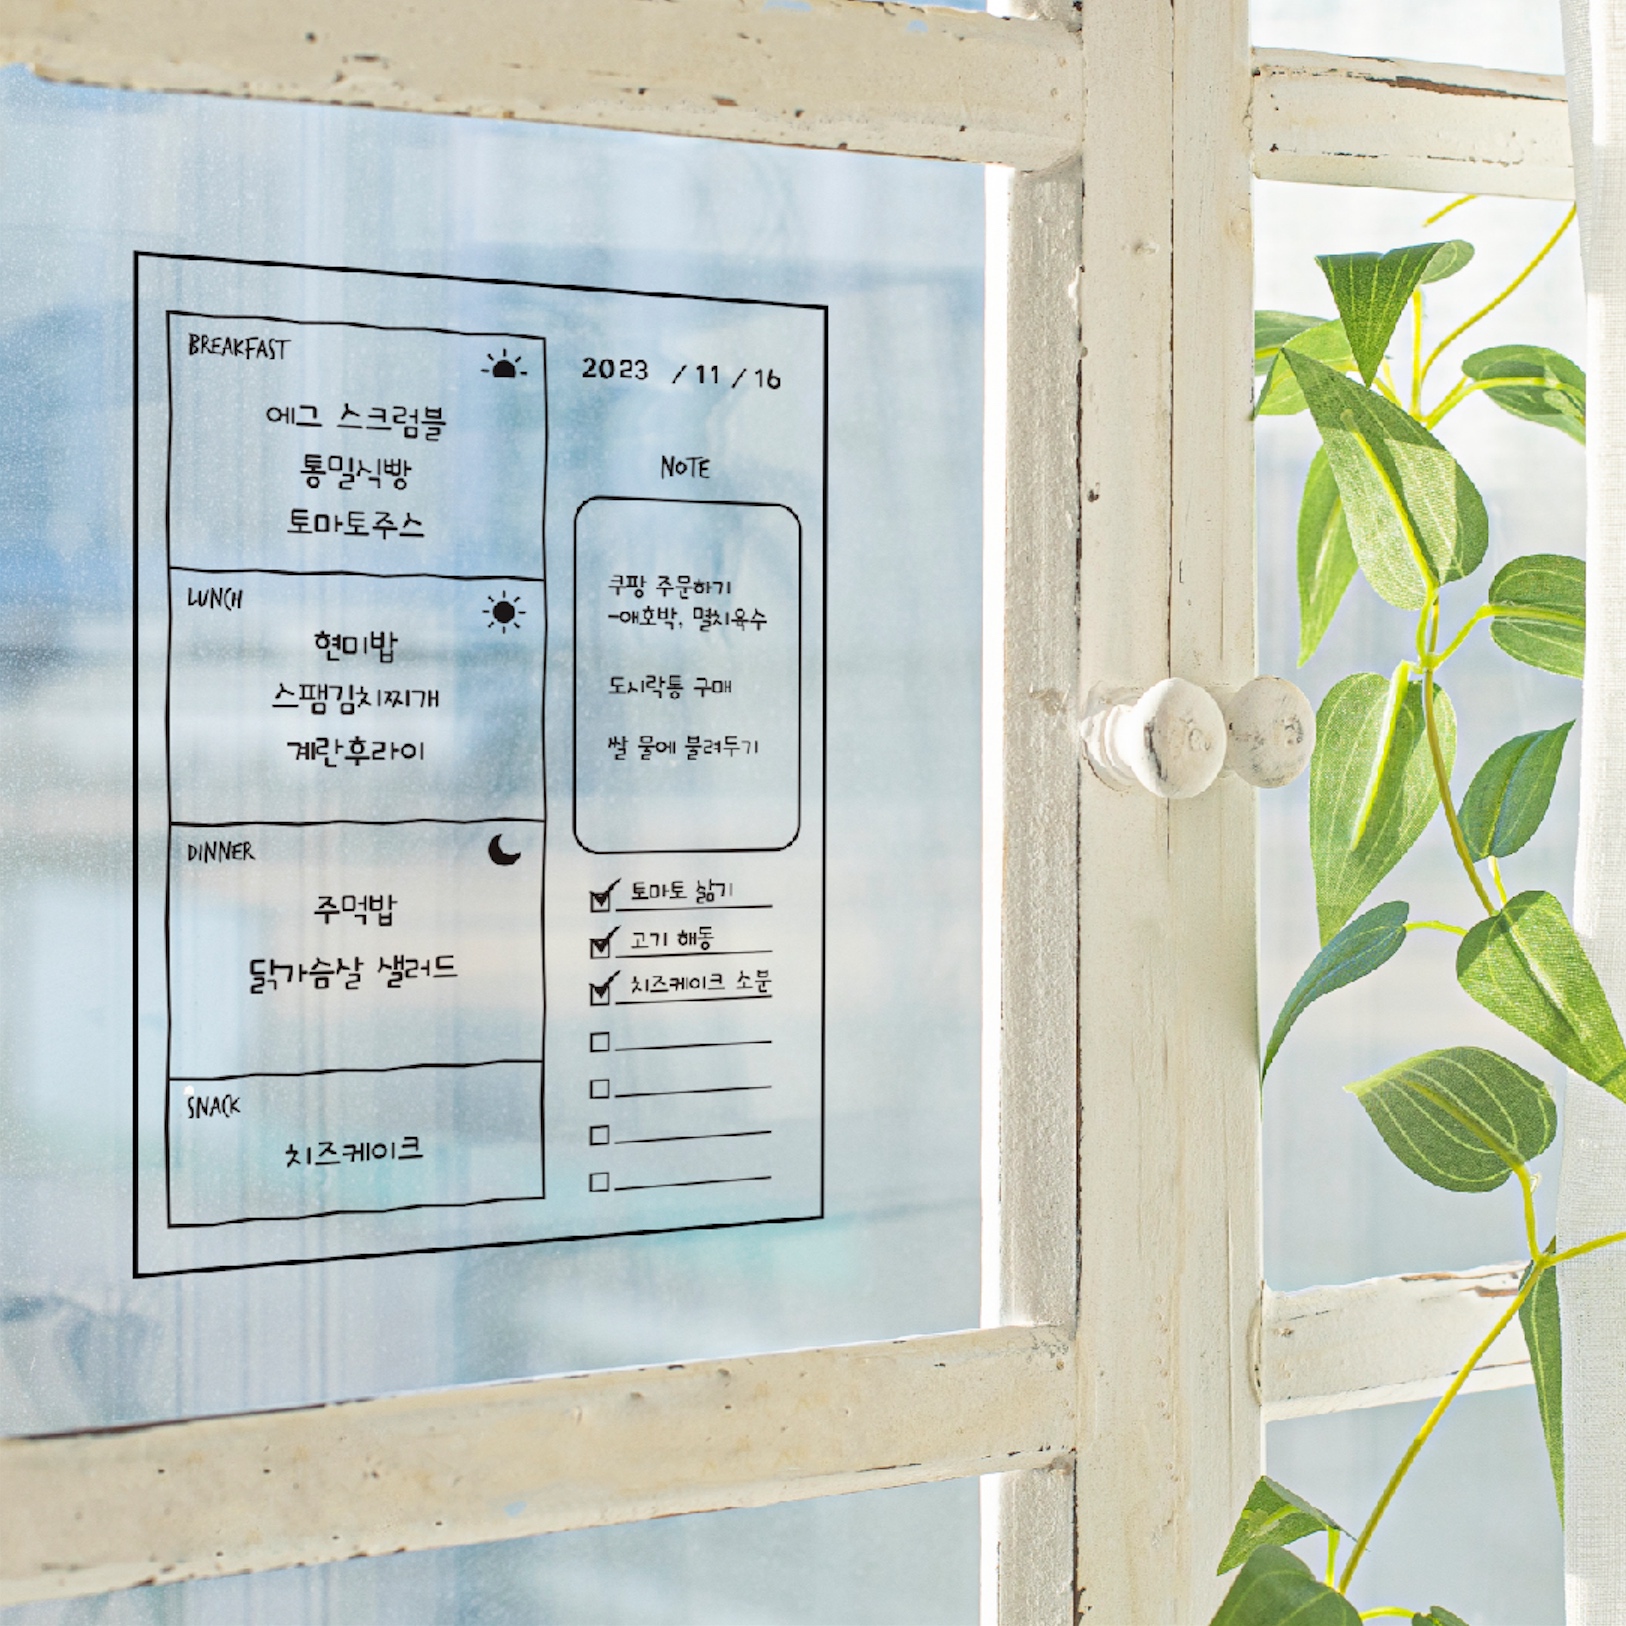 BREAKFAST
에그 스크럼블
통밀식빵
토마토주스
LUNCH
현미밥
스팸김치찌개
계란후라이
DINNER
주먹밥
닭가슴살 샐러드
SNACK
치즈케이크
2023 / 11 / 16
NOTE
쿠팡 주문하기
-애호박, 멸치육수
도시락통 구매
쌀 물에 불려두기
토마토 삶기
고기 해동
치즈케이크 소분